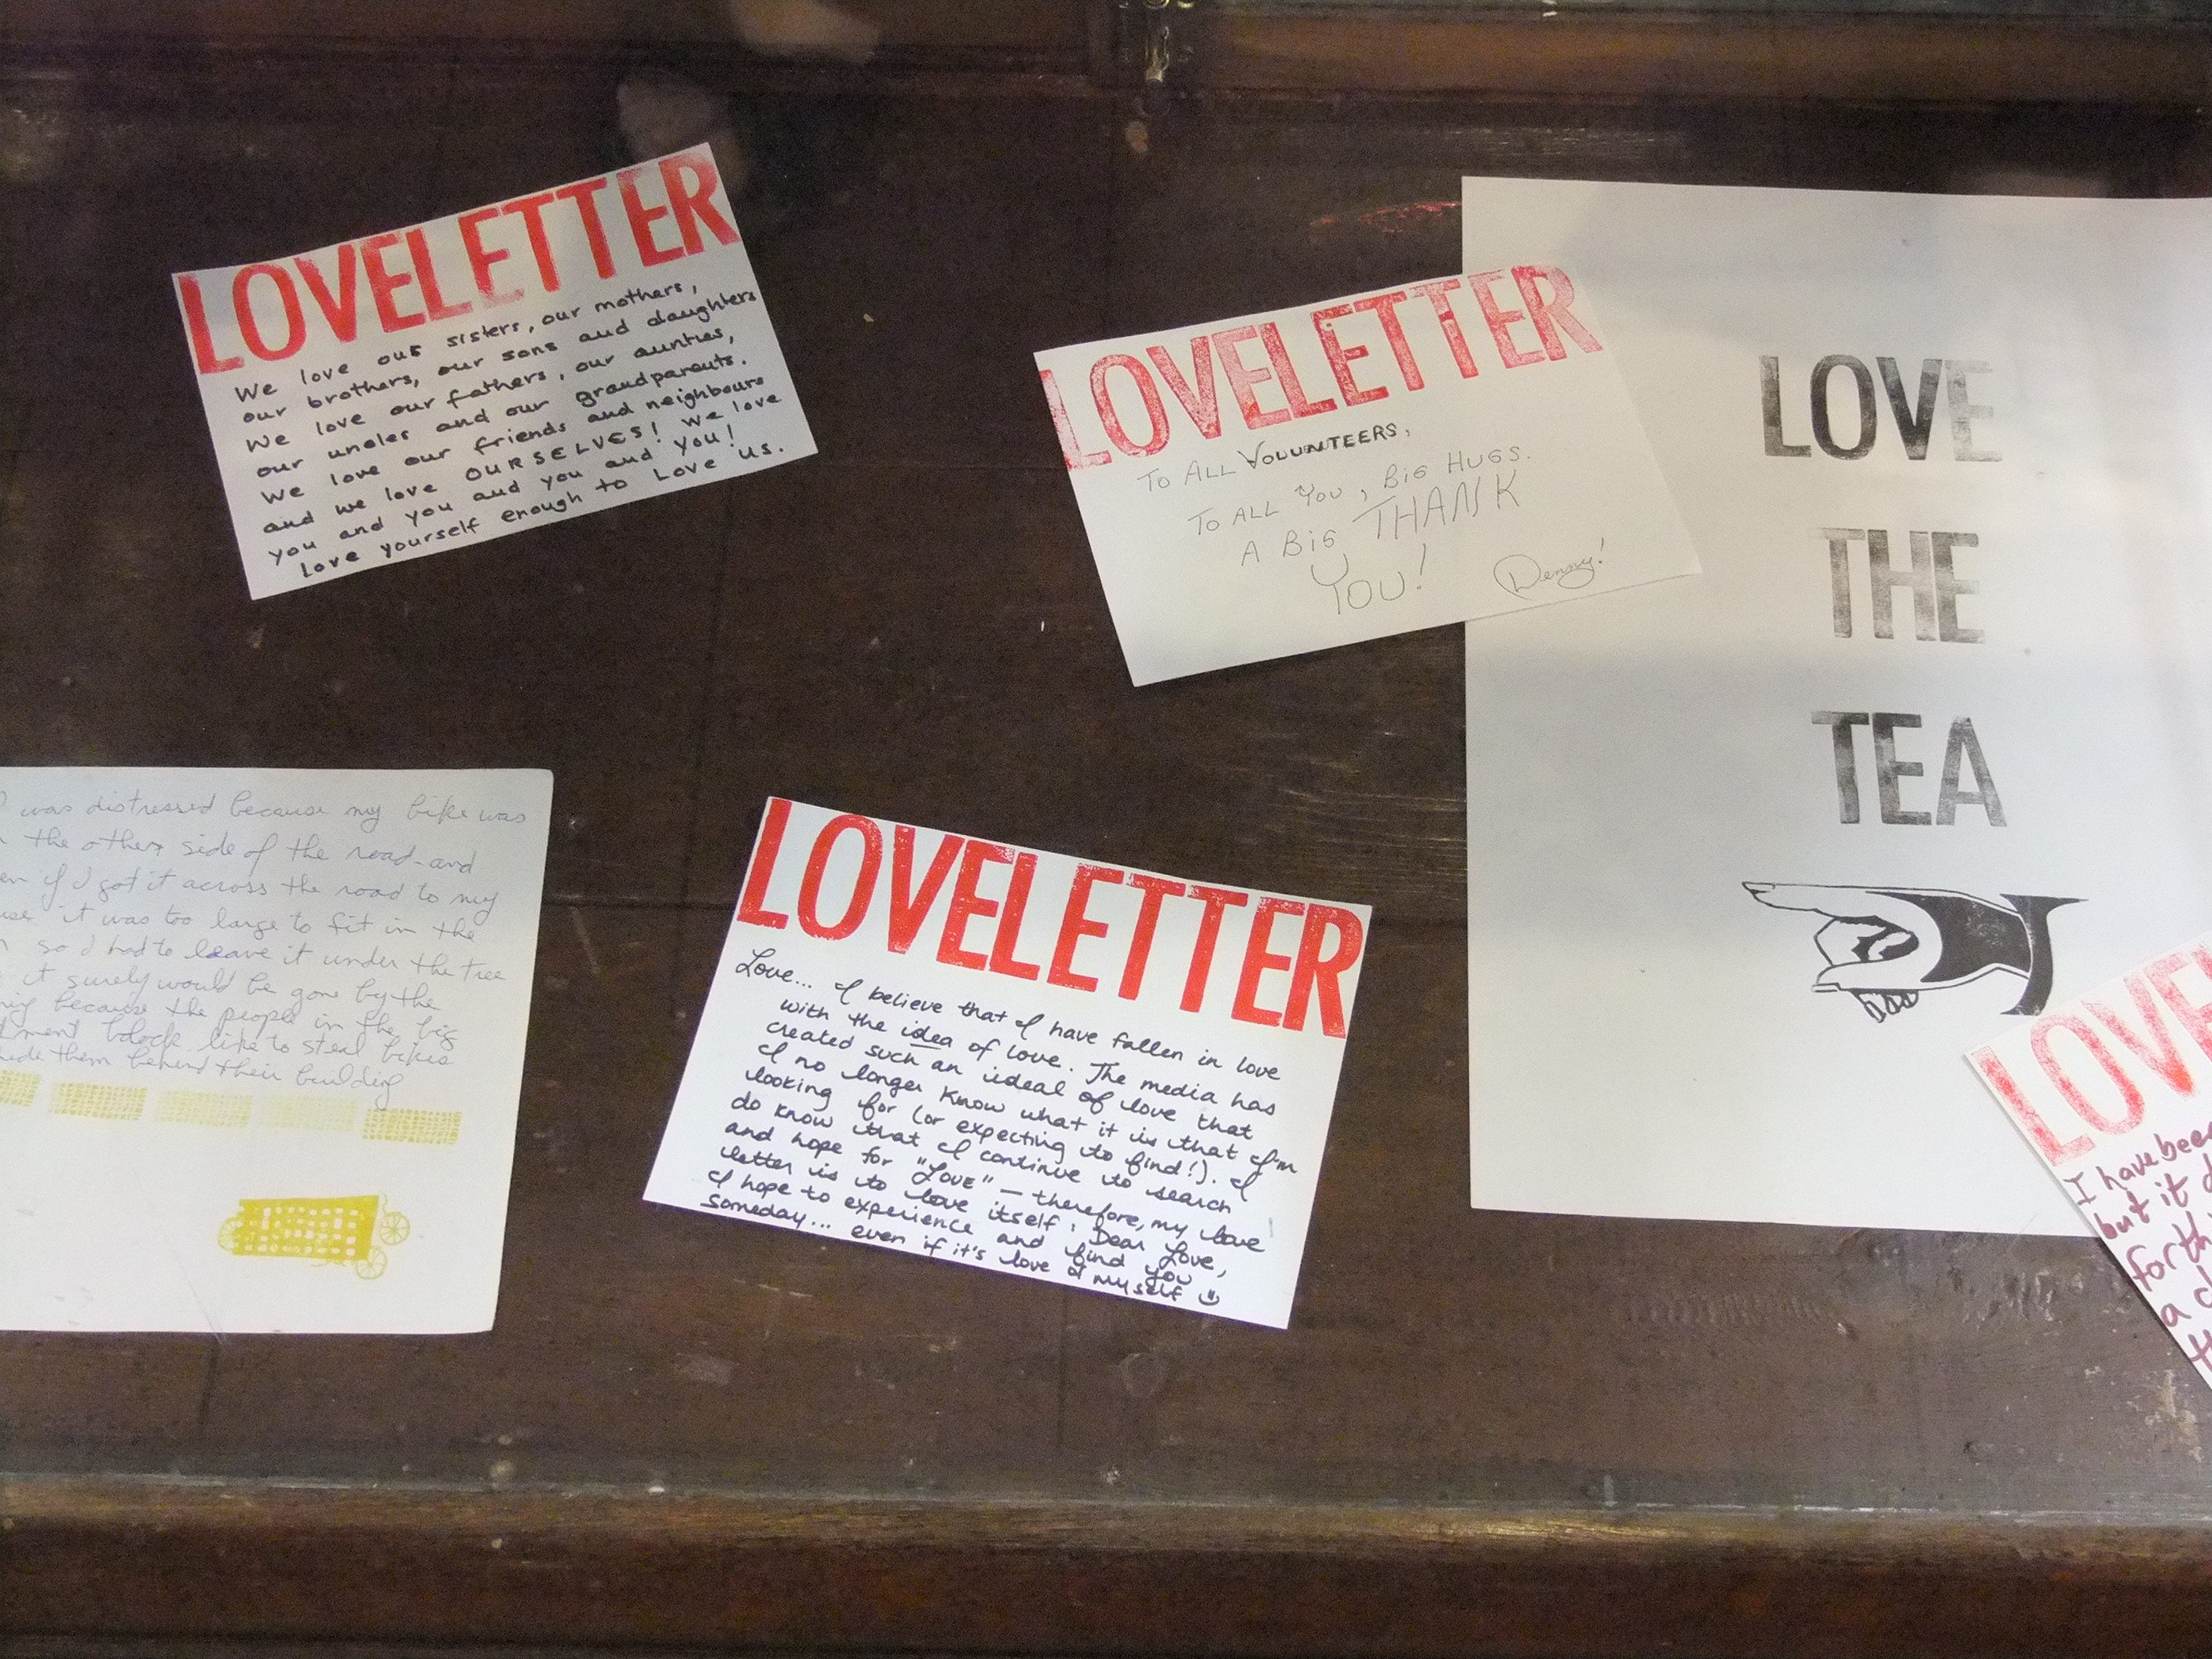 LOVELETTER
We love our sisters, our mothers,
our brothers, our sons and daughters
We love our fathers, our aunties,
our uncles and our grandparents.
We love our friends and neighbours
and we love OURSELVES! We love
you and you and you and you!
Love yourself enough to Love us.
LOVELETTER
TO ALL VOLUNTEERS,
TO ALL YOU, BIG HUGS.
A BIG THANK
YOU!
Denny!
LOVE
THE
TEA
I was distressed because my bike was
the other side of the road - and
if I got it across the road to my
it was too large to fit in the
so I had to leave it under the tree
it surely would be gone by the
because the people in the big
block like to steal bikes
them behind their building
LOVELETTER
Love... I believe that I have fallen in love
with the idea of love. The media has
created such an ideal of love that
I no longer know what it is that I'm
looking for (or expecting to find!). I
do know that I continue to search
and hope for "LOVE" – therefore, my love
letter is to love itself: Dear Love,
I hope to experience and find you
someday... even if it's love of myself
LOVE
I have been
but it
for
a